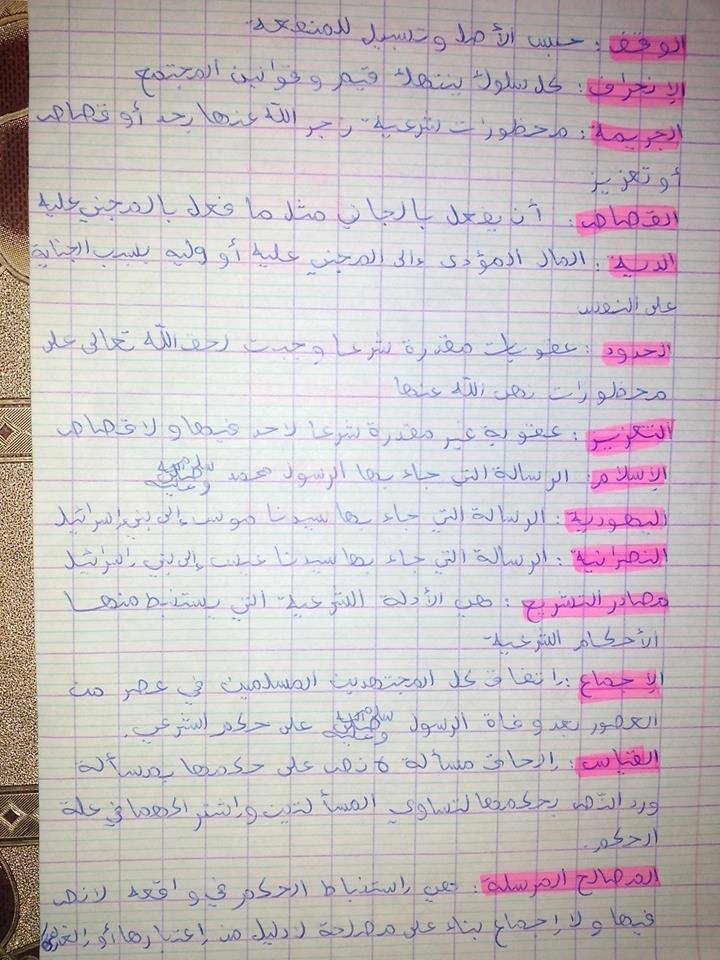 الوقف : حبس الأصل وتسبيل للمنفعة
الإنحراف : كل سلوك ينتهك قيم وقوانين المجتمع
الجريمة : محظورات شرعية زجر الله عنها بحد أو قصاص
أو تعزيز
القصاص : أن يفعل بالجاني مثل ما فعل بالمجني عليه
الدية : المال المؤدى إلى المجني عليه أو وليه بسبب الجناية
على النفس
الحدود : عقوبات مقدرة شرعا وجبت لحق الله تعالى على
محظورات نهى الله عنها
التعزير : عقوبة غير مقدرة شرعا لا حد فيها ولا قصاص
الإسلام : الرسالة التي جاء بها الرسول محمد صلى الله عليه وسلم
اليهودية : الرسالة التي جاء بها سيدنا موسى إلى بني إسرائيل
النصرانية : الرسالة التي جاء بها سيدنا عيسى إلى بني إسرائيل
مصادر التشريع : هي الأدلة الشرعية التي يستنبط منها
الأحكام الشرعية
الإجماع : إتفاق كل المجتهدين المسلمين في عصر من
العصور بعد وفاة الرسول صلى الله عليه وسلم على حكم الشرعي.
القياس : إلحاق مسألة لا نص على حكمها بمسألة
ورد النص بحكمها لتساوي المسألتين واشتراكهما في علة
الحكم.
المصالح المرسلة : هي إستنباط الحكم في واقعة لا نص
فيها ولا إجماع بناء على مصلحة لا دليل من إعتبارها أو إلغائها